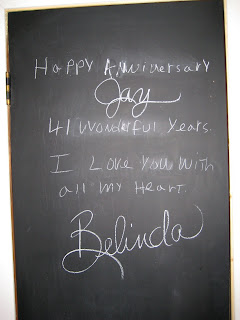 Happy Anniversary
Jay
41 Wonderful Years.
I Love You With
all my Heart.
Belinda